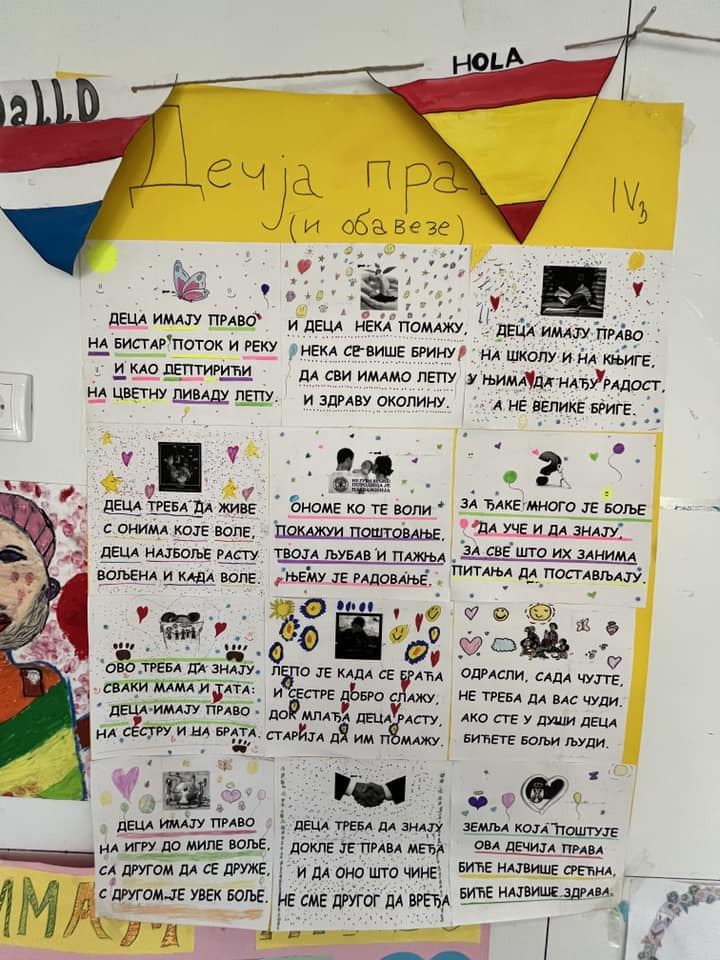 HOLA
Дечја пра
(и обавезе)
IV3
ДЕЦА ИМАЈУ ПРАВО
НА БИСТАР ПОТОК И РЕКУ
И КАО ДЕПТИРИЋИ
НА ЦВЕТНУ ЛИВАДУ ЛЕПУ.
И ДЕЦА НЕКА ПОМАЖУ,
НЕКА СЕ ВИШЕ БРИНУ
ДА СВИ ИМАМО ЛЕПУ
И ЗДРАВУ ОКОЛИНУ.
ДЕЦА ИМАЈУ ПРАВО
НА ШКОЛУ И НА КЊИГЕ,
У ЊИМА ДА НАЂУ РАДОСТ,
А НЕ ВЕЛИКЕ БРИГЕ.
ДЕЦА ТРЕБА ДА ЖИВЕ
С ОНИМА КОЈЕ ВОЛЕ,
ДЕЦА НАЈБОЉЕ РАСТУ
ВОЉЕНА И КАДА ВОЛЕ.
ПОРОДИЦА ЈЕ
НАЈВАЖНИЈА
ОНОМЕ КО ТЕ ВОЛИ
ПОКАЖУИ ПОШТОВАЊЕ,
ТВОЈА ЉУБАВ И ПАЖЊА
ЊЕМУ ЈЕ РАДОВАЊЕ.
ЗА ЂАКЕ МНОГО ЈЕ БОЉЕ
ДА УЧЕ И ДА ЗНАЈУ,
ЗА СВЕ ШТО ИХ ЗАНИМА
ПИТАЊА ДА ПОСТАВЉАЈУ.
ОВО ТРЕБА ДА ЗНАЈУ
СВАКИ МАМА И ТАТА:
ДЕЦА ИМАЈУ ПРАВО
НА СЕСТРУ И НА БРАТА.
ЛЕПО ЈЕ КАДА СЕ БРАЋА
И СЕСТРЕ ДОБРО СЛАЖУ,
ДОК МЛАЂА ДЕЦА РАСТУ,
СТАРИЈА ДА ИМ ПОМАЖУ.
ОДРАСЛИ, САДА ЧУЈТЕ,
НЕ ТРЕБА ДА ВАС ЧУДИ.
АКО СТЕ У ДУШИ ДЕЦА
БИЋЕТЕ БОЉИ ЉУДИ.
ДЕЦА ИМАЈУ ПРАВО
НА ИГРУ ДО МИЛЕ ВОЉЕ,
СА ДРУГОМ ДА СЕ ДРУЖЕ,
С ДРУГОМ ЈЕ УВЕК БОЉЕ.
ДЕЦА ТРЕБА ДА ЗНАЈУ
ДОКЛЕ ЈЕ ПРАВА МЕЂА
И ДА ОНО ШТО ЧИНЕ
НЕ СМЕ ДРУГОГ ДА ВРЕЂА
ЗЕМЉА КОЈА ПОШТУЈЕ
ОВА ДЕЧИЈА ПРАВА
БИЋЕ НАЈВИШЕ СРЕЋНА,
БИЋЕ НАЈВИШЕ ЗДРАВА.